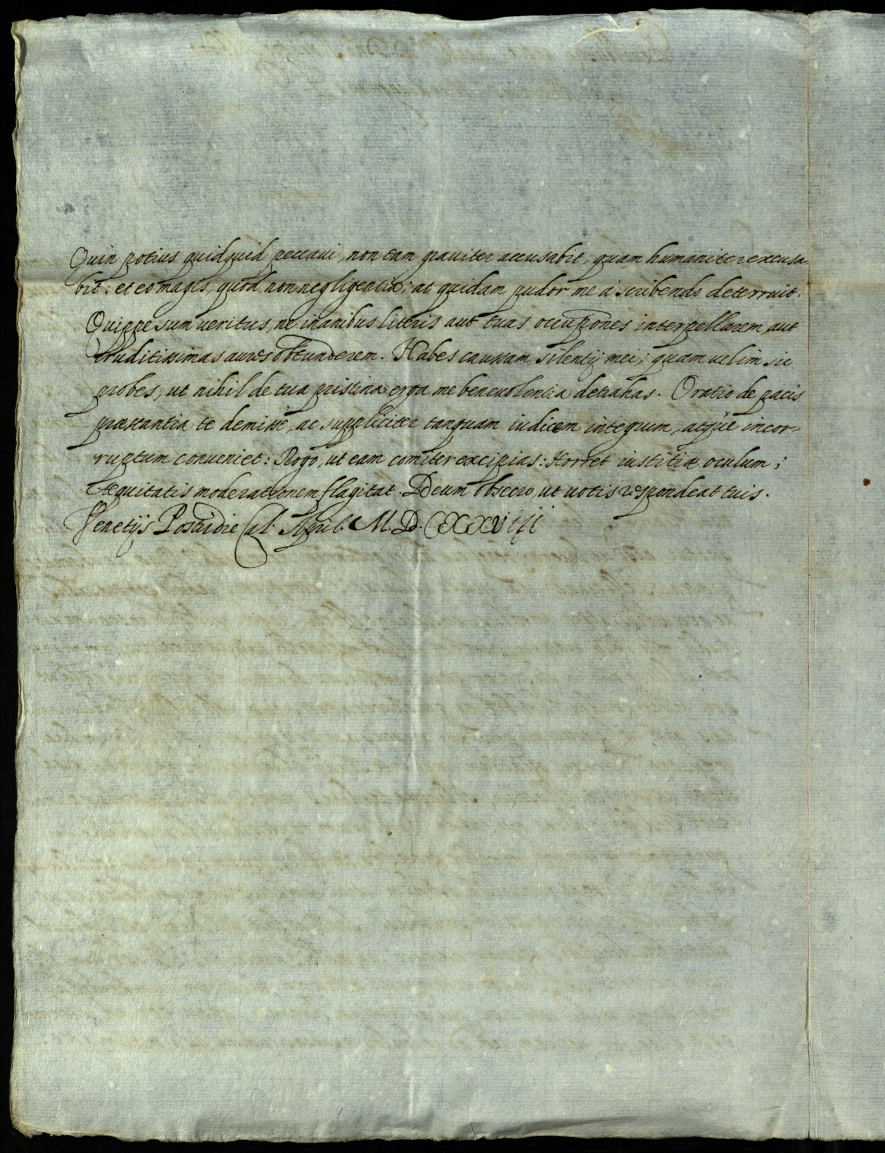 Quin potius quidquid peccavi, non tam graviter accusabit, quam humaniter excusa
bit: et eo magis, quod non negligentia; at quidam pudor me à scribendo deterruit.
Quippe sum veritus, ne inanibus litteris aut tuas occupationes interpellarem aut
eruditissimas aures obtunderem. Habes caussam silentij mei; quam velim sic
probes, ut nihil de tua pristina erga me benevolentia detrahas. Oratio de pacis
præstantia te demissè, ac suppliciter tanquam iudicem integrum, atque incor-
ruptum conveniet: Rogo, ut eam comiter excipias: Horret iustitiæ oculum;
Æquitatis moderationem flagitat. Deum obsecro, ut votis respondeat tuis.
Venetijs Postridie Cal. April. M. D.